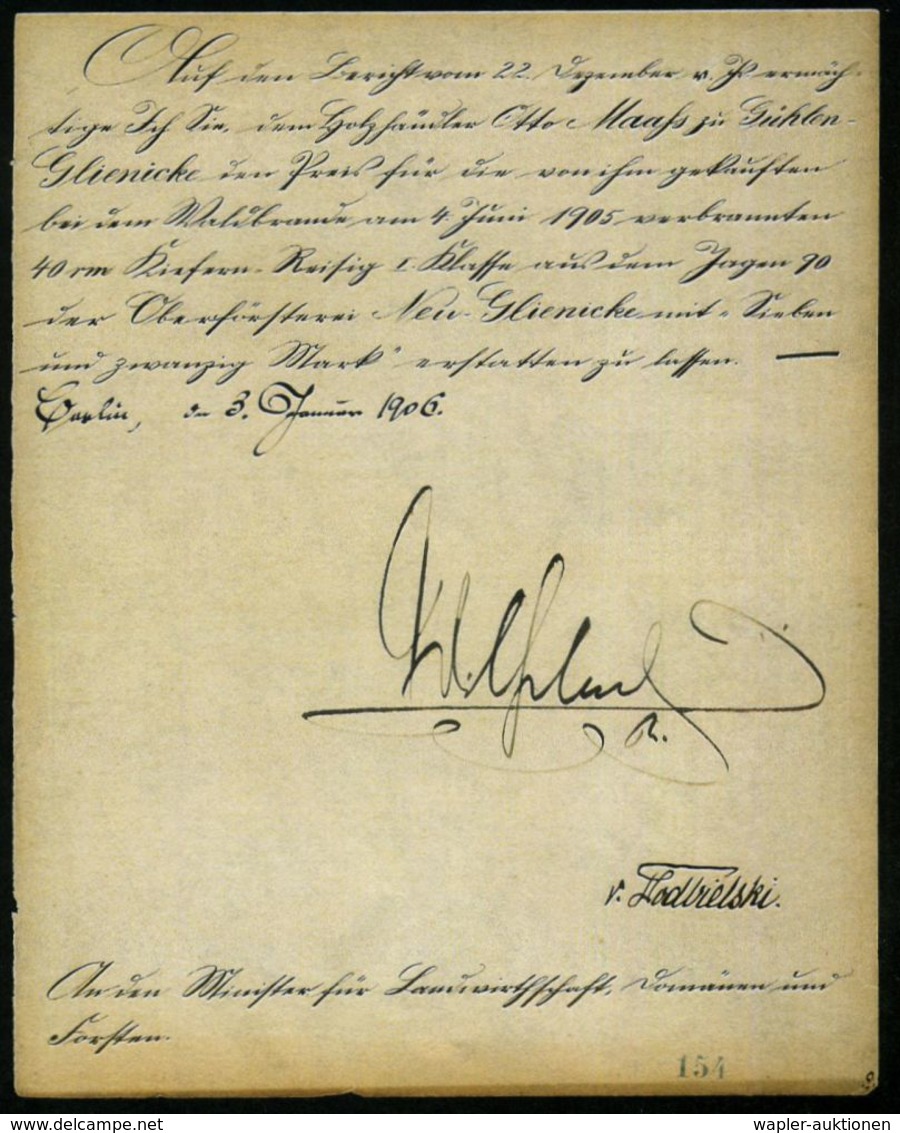 Auf den Bericht vom 22. Dezember v. Js ermäch-
tige Ich Sie, dem Holzhändler Otto Maaß zu Gühlen-
Glienicke den Preis für die von ihm gekauften
bei dem Waldbrande am 4. Juni 1905 verbrannten
40 rm Kiefern-Reisig I. Klasse aus dem Jagen 90
der Oberförsterei Neu-Glienicke mit „Sieben
und zwanzig Mark“ erstatten zu lassen. —
Berlin, den 3. Januar 1906.
Wilhelm
R.
v. Podbielski.
An den Minister für Landwirthschaft, Domänen und
Forsten.
154
wapler-auktionen